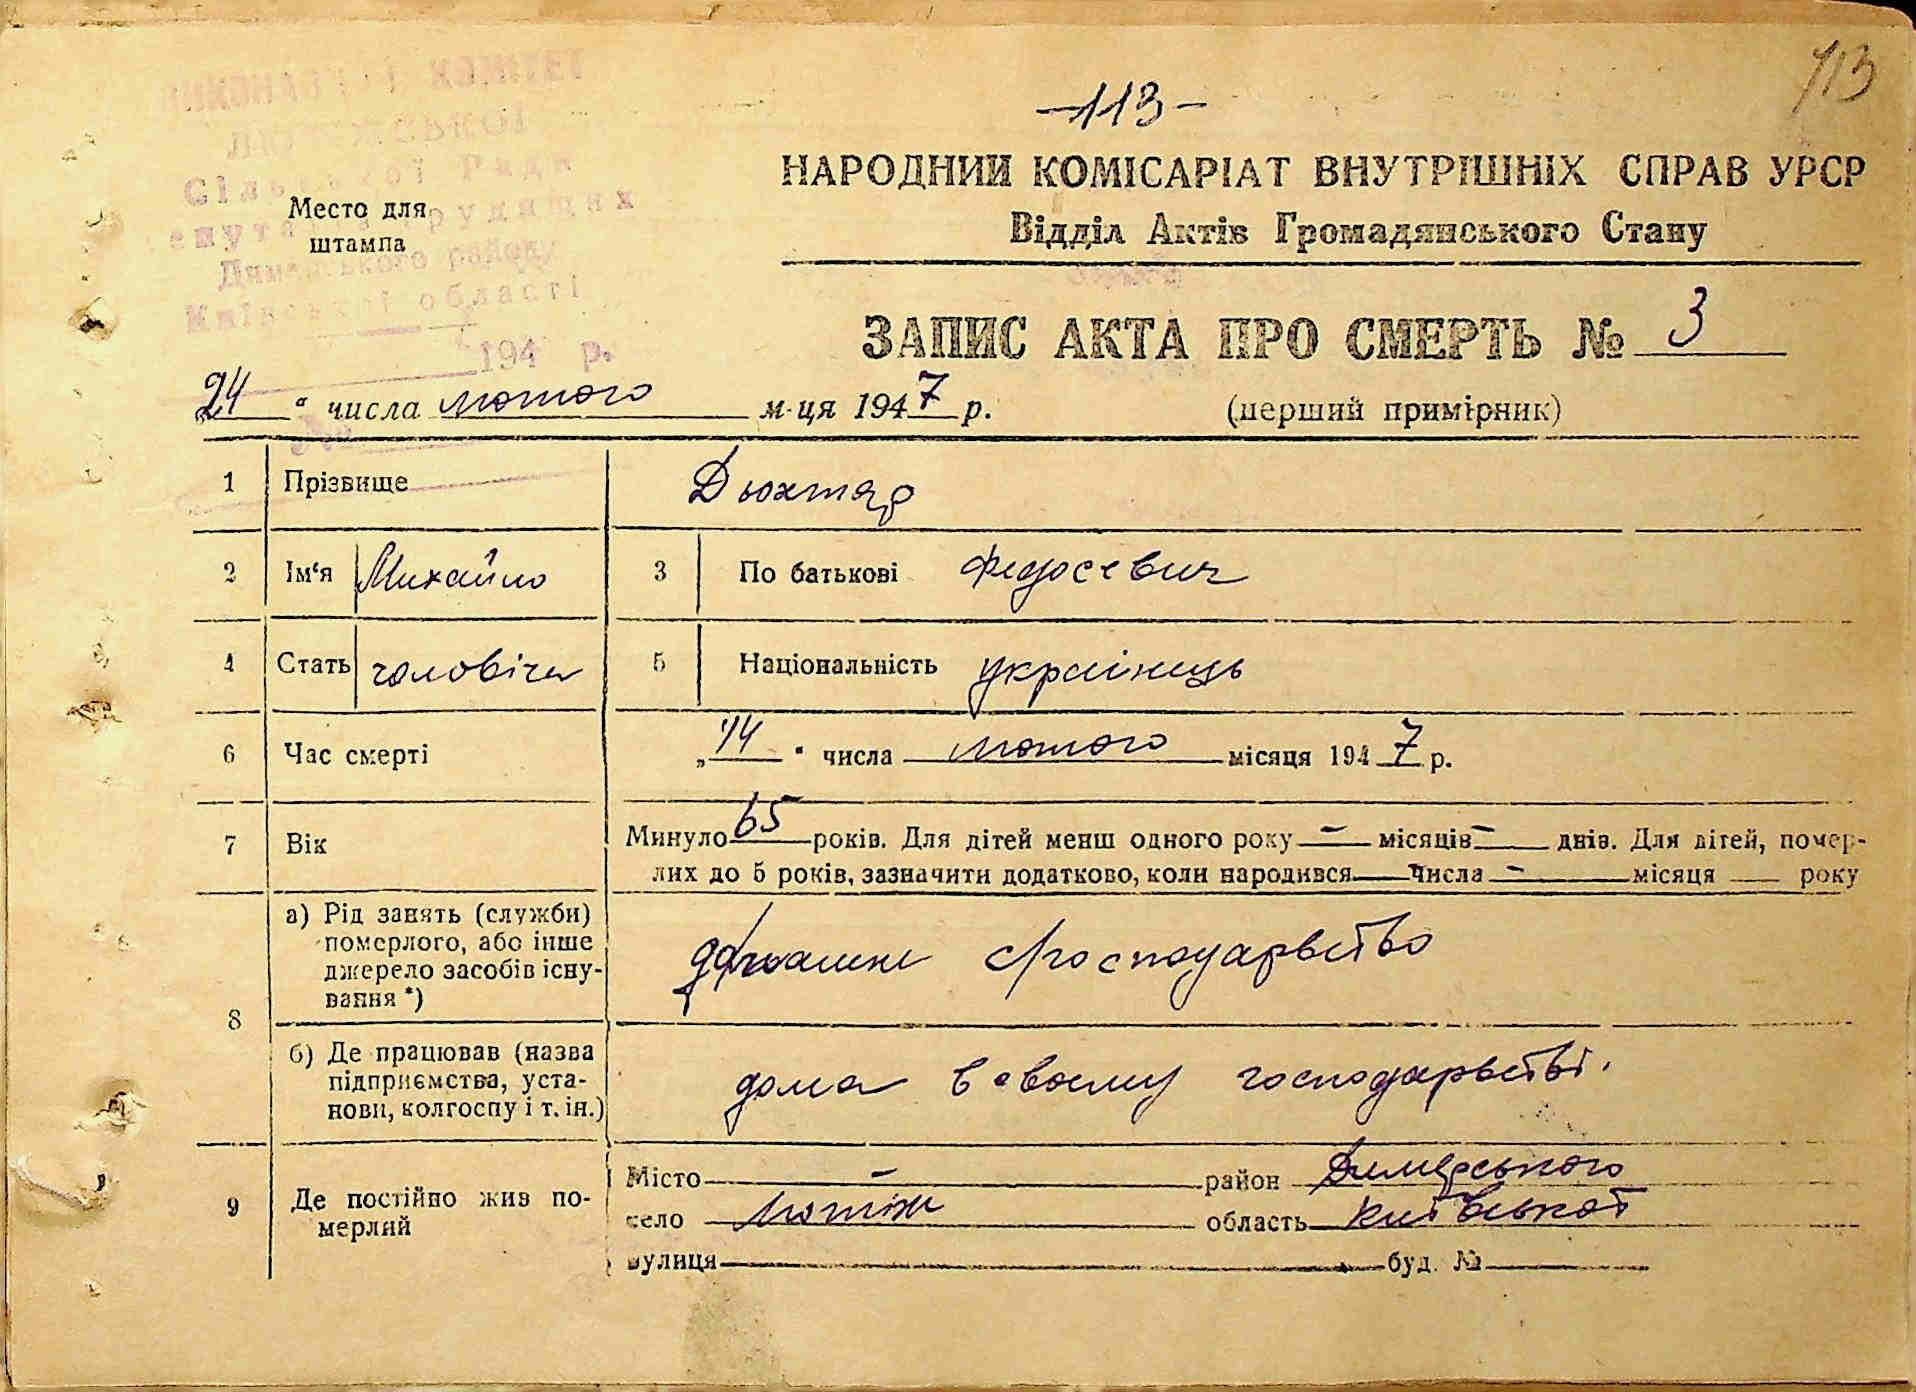 113
-113-
ВИКОНАВЧИЙ КОМІТЕТ
ЛЮТІЖСЬКОЇ
Сільської Ради
депутатів трудящих
Димерського району
Київської області
194 р.
№
Место для
штампа
НАРОДНИЙ КОМІСАРІАТ ВНУТРІШНІХ СПРАВ УРСР
Відділ Актів Громадянського Стану
ЗАПИС АКТА ПРО СМЕРТЬ № 3
24 " числа лютого м-ця 1947 р. (перший примірник)
1 Прізвище Дюхтяр
2 Ім'я Михайло 3 По батькові Федосевич
4 Стать чоловіча 5 Національність українець
6 Час смерті „14" числа лютого місяця 1947 р.
7 Вік Минуло 65 років. Для дітей менш одного року — місяців — днів. Для дітей, помер-
лих до 5 років, зазначити додатково, коли народився — числа — місяця — року
8 а) Рід занять (служби)
померлого, або інше
джерело засобів існу-
вання *)
домашнє господарьство
б) Де працював (назва
підприємства, уста-
нови, колгоспу і т. ін.)
дома в своєму господарьстві.
9 Де постійно жив по-
мерлий
Місто — район Димерського
село Лютіж область Київської
вулиця — буд. № —